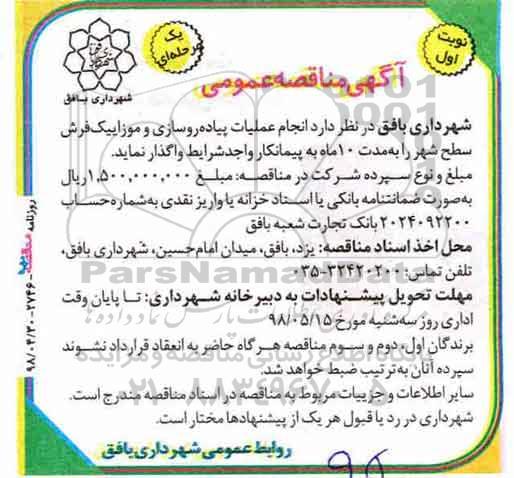 نوبت
اول
یک
مرحله‌ای
شهرداری بافق
آگهی مناقصه عمومی
شهرداری بافق در نظر دارد انجام عملیات پیاده‌روسازی و موزاییک‌فرش
سطح شهر را به‌مدت ۱۰ماه به پیمانکار واجدشرایط واگذار نماید.
مبلغ و نوع سپرده شرکت در مناقصه: مبلغ ۱,۵۰۰,۰۰۰,۰۰۰ریال
به‌صورت ضمانتنامه بانکی یا اسناد خزانه یا واریز نقدی به‌شماره‌حساب
۲۰۲۴۰۹۲۲۰۰ بانک تجارت شعبه بافق
محل اخذ اسناد مناقصه: یزد، بافق، میدان امام‌حسین، شهرداری بافق،
تلفن تماس: ۳۲۴۲۰۲۰۰-۰۳۵
مهلت تحویل پیشنهادات به دبیرخانه شهرداری: تا پایان وقت
اداری روز سه‌شنبه مورخ ۹۸/۰۵/۱۵
برندگان اول، دوم و سوم مناقصه هرگاه حاضر به انعقاد قرارداد نشوند
سپرده آنان به‌ترتیب ضبط خواهد شد.
سایر اطلاعات و جزییات مربوط به مناقصه در اسناد مناقصه مندرج است.
شهرداری در رد یا قبول هر یک از پیشنهادها مختار است.
روابط عمومی شهرداری بافق
روزنامه مناقصه - ۲۷۴۶ - ۹۸/۰۴/۳۰
ParsNamadData
پایگاه اطلاع رسانی مناقصه و مزایده
۰۲۱-۸۸۳۴۹۶۷۰-۵